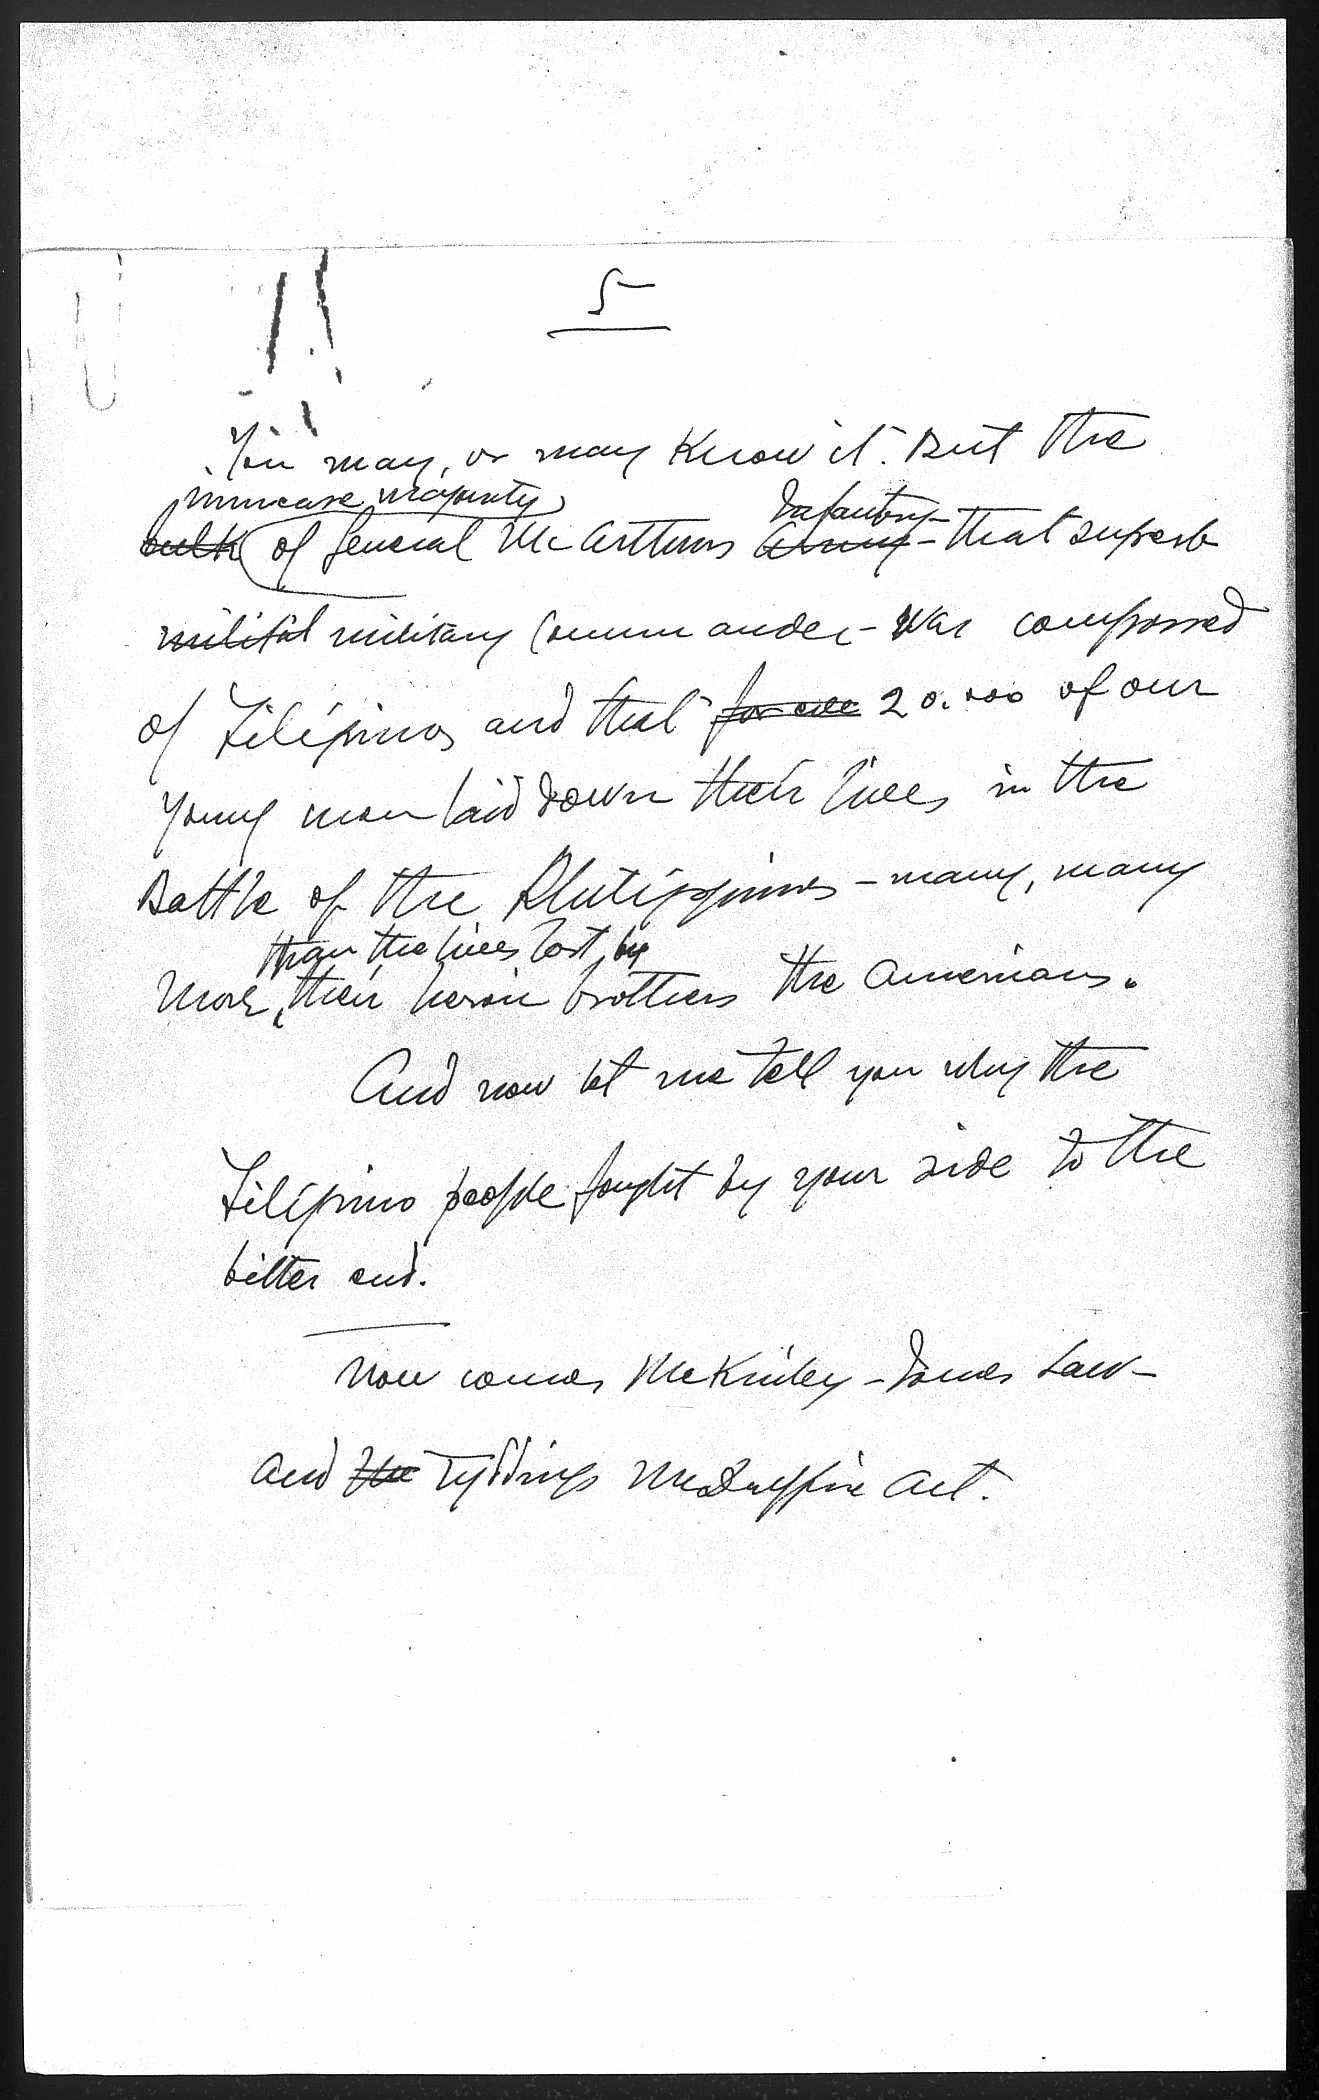 5
You may, or may know it. But the
immense majority
bulk of General McArthurs Army Infantry - that superb
milital military Commander - was compossed
of Filipinos and that for our 20.000 of our
young men laid down their lives in the
Battle of the Philippines - many, many
than the lives lost by
more, their heroic brothers the Americans.
And now let me tell you why the
Filipino people fought by your side to the
bitter end.
Now comes McKinley - Jones Law -
and the Tyddings McDuffie Act.